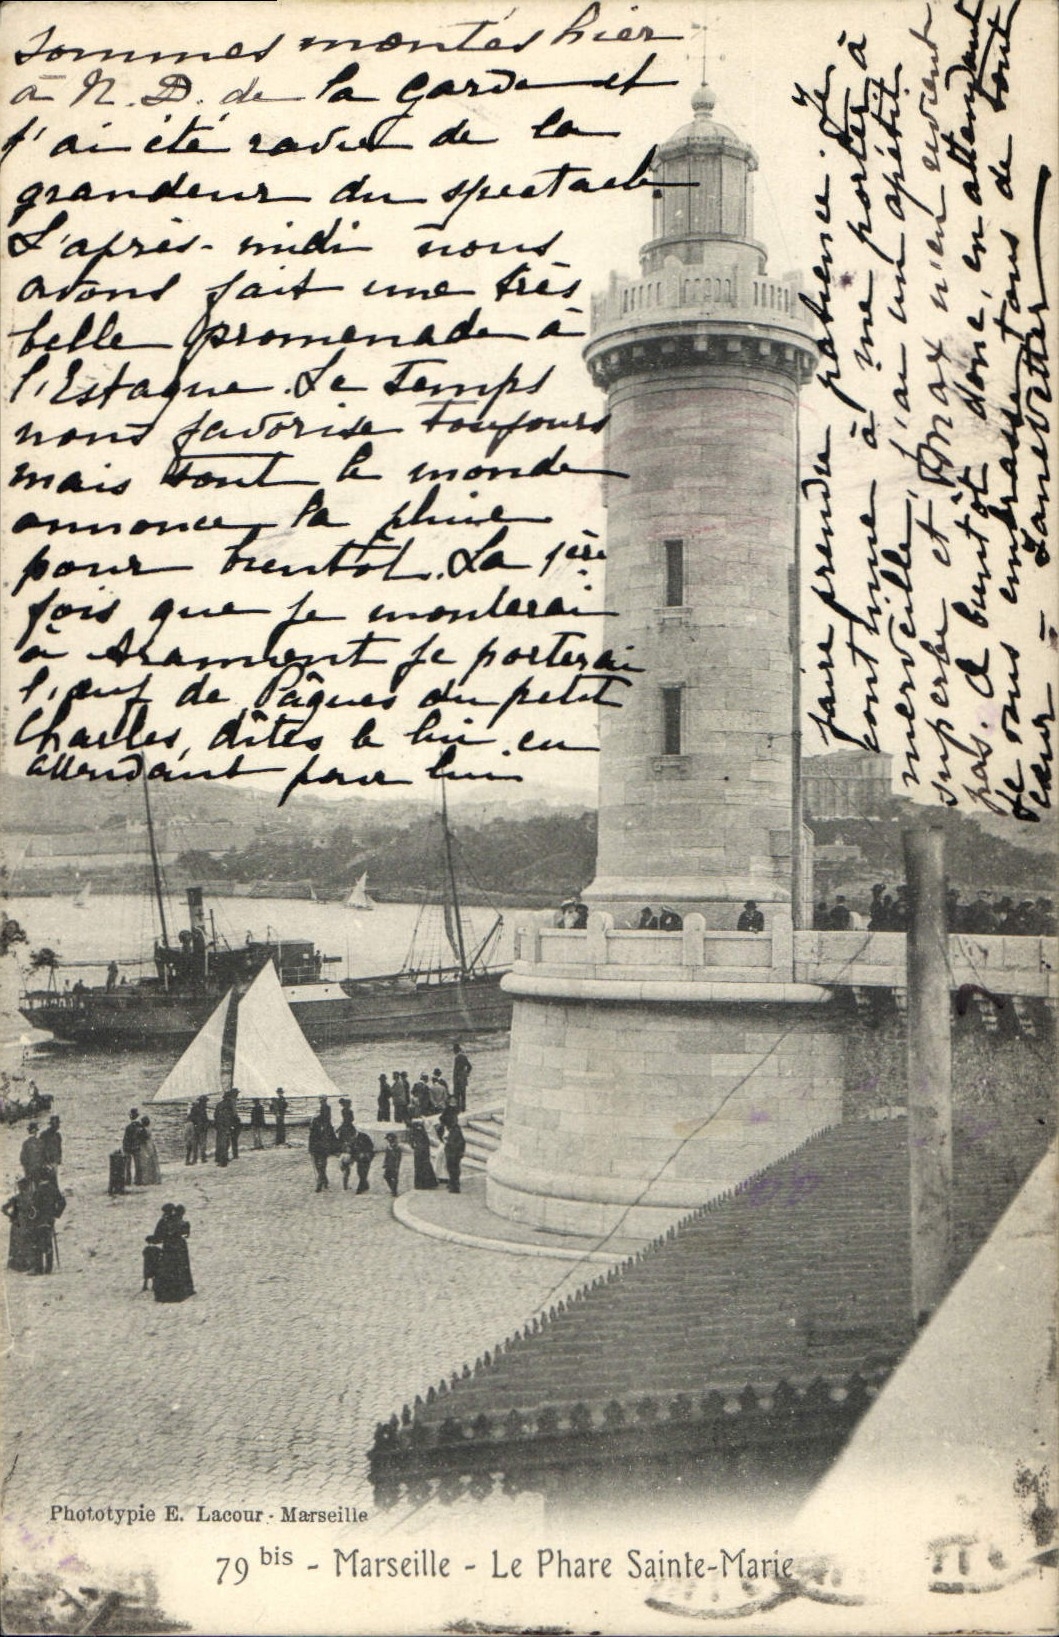 sommes montés hier
à N. D. de la Garde et
j'ai été ravie de la
grandeur du spectacle.
L'après-midi nous
avons fait une très
belle promenade à
l'Estaque. Le temps
nous favorise toujours
mais tout le monde
annonce la pluie
pour bientôt. La 1ère
fois que je monterai
à Aramont je porterai
l'œuf de Pâques du petit
Charles, dîtes le lui en
attendant pour lui
faire prendre patience. Je
continue à me porter à
merveille, j'ai un apétit
superbe et Max n'en revient
pas. A bientôt donc, en attendant
je vous embrasse tous de tout
cœur -
Phototypie E. Lacour - Marseille
79 bis - Marseille - Le Phare Sainte-Marie